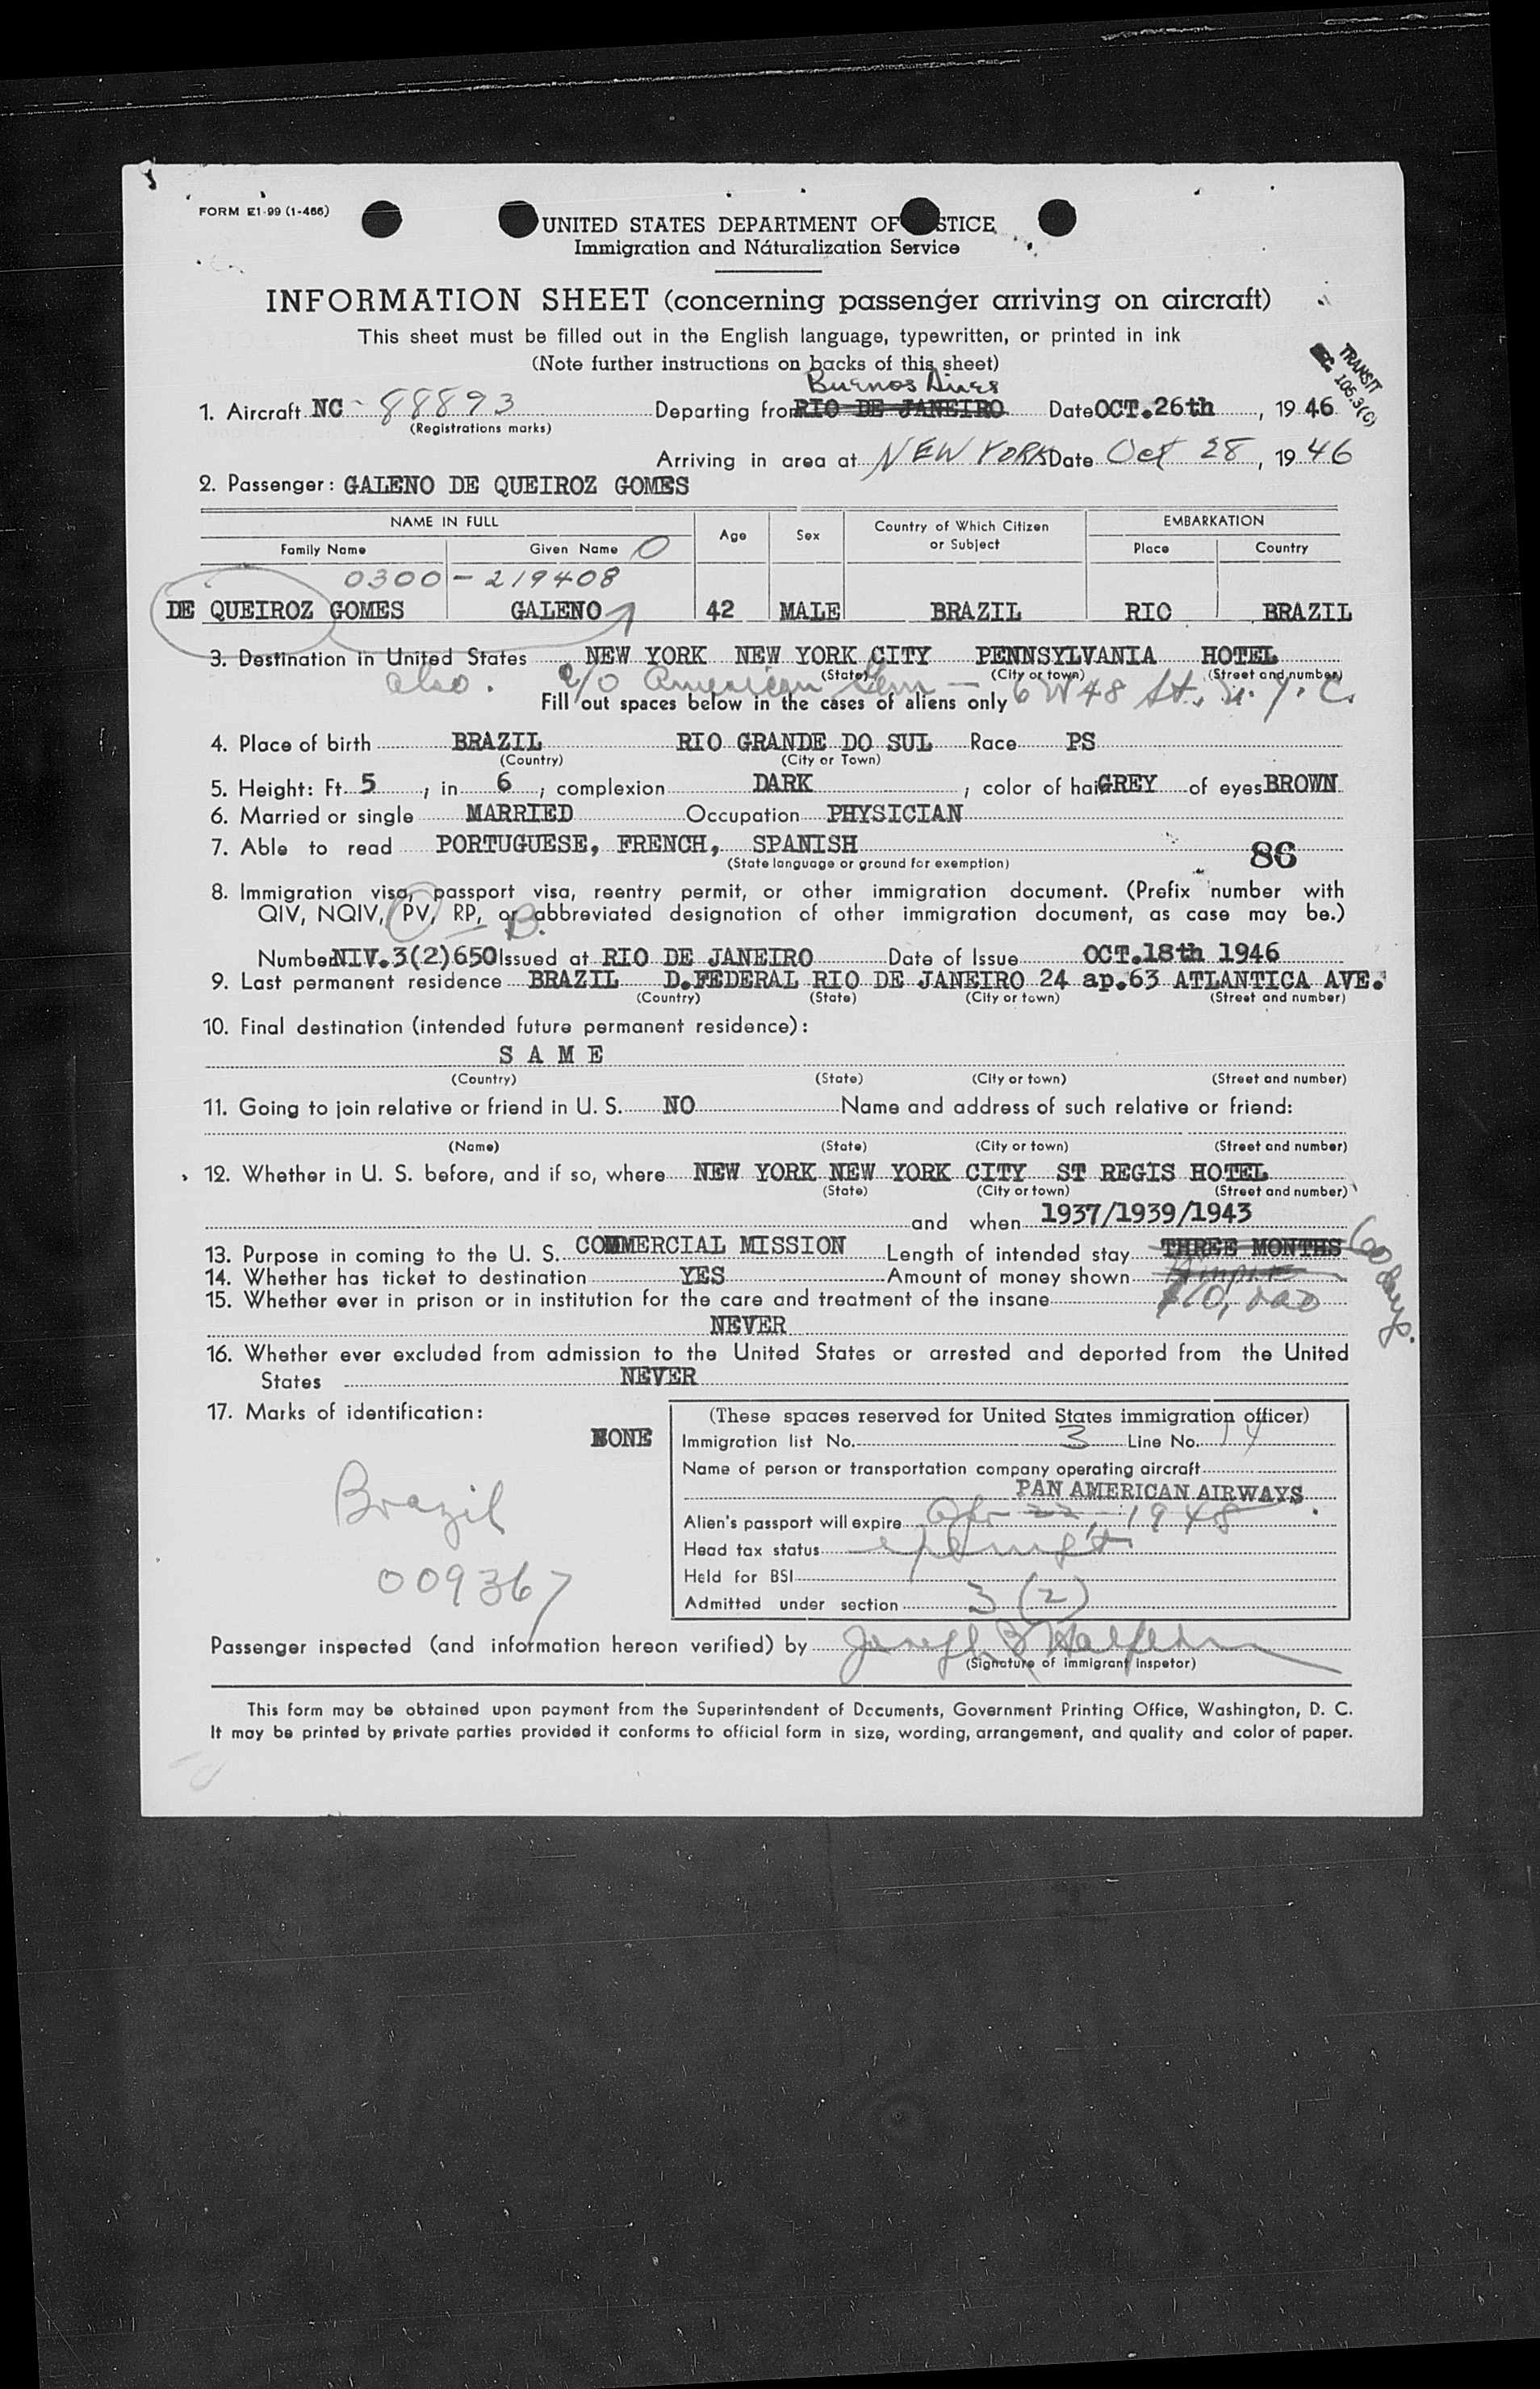 FORM E1-99 (1-466)
UNITED STATES DEPARTMENT OF STICE
Immigration and Naturalization Service
INFORMATION SHEET (concerning passenger arriving on aircraft)
This sheet must be filled out in the English language, typewritten, or printed in ink
(Note further instructions on backs of this sheet)
TRANSIT
SEC 105.3(C)
Buenos Aires
1. Aircraft NC - 88893 Departing from RIO DE JANEIRO Date OCT.26th, 1946
(Registrations marks)
Arriving in area at NEW YORK Date Oct 28, 1946
2. Passenger: GALENO DE QUEIROZ GOMES
NAME IN FULL Age Sex Country of Which Citizen or Subject EMBARKATION
Family Name Given Name O Place Country
0300-219408
DE QUEIROZ GOMES GALENO 42 MALE BRAZIL RIO BRAZIL
3. Destination in United States NEW YORK NEW YORK CITY PENNSYLVANIA HOTEL
(State) (City or town) (Street and number)
also. c/o American Gem - 6 W 48 St., N.Y.C.
Fill out spaces below in the cases of aliens only
4. Place of birth BRAZIL RIO GRANDE DO SUL Race PS
(Country) (City or Town)
5. Height: Ft. 5, in 6; complexion DARK, color of hai GREY of eyes BROWN
6. Married or single MARRIED Occupation PHYSICIAN
7. Able to read PORTUGUESE, FRENCH, SPANISH
(State language or ground for exemption)
86
8. Immigration visa, passport visa, reentry permit, or other immigration document. (Prefix number with
QIV, NQIV, PV, RP, or abbreviated designation of other immigration document, as case may be.)
B.
Number NIV.3(2)650 Issued at RIO DE JANEIRO Date of Issue OCT.18th 1946
9. Last permanent residence BRAZIL D.FEDERAL RIO DE JANEIRO 24 ap.63 ATLANTICA AVE.
(Country) (State) (City or town) (Street and number)
10. Final destination (intended future permanent residence):
S A M E
(Country) (State) (City or town) (Street and number)
11. Going to join relative or friend in U. S. NO Name and address of such relative or friend:
(Name) (State) (City or town) (Street and number)
12. Whether in U. S. before, and if so, where NEW YORK NEW YORK CITY ST REGIS HOTEL
(State) (City or town) (Street and number)
and when 1937/1939/1943
13. Purpose in coming to the U. S. COMMERCIAL MISSION Length of intended stay THREE MONTHS 60 days.
14. Whether has ticket to destination YES Amount of money shown
15. Whether ever in prison or in institution for the care and treatment of the insane $10,000
NEVER
16. Whether ever excluded from admission to the United States or arrested and deported from the United
States NEVER
17. Marks of identification:
NONE
Brazil
009367
(These spaces reserved for United States immigration officer)
Immigration list No. 3 Line No. 14
Name of person or transportation company operating aircraft
PAN AMERICAN AIRWAYS
Alien's passport will expire Apr 22, 1948
Head tax status exempt
Held for BSI
Admitted under section 3 (2)
Passenger inspected (and information hereon verified) by Joseph B Halpern
(Signature of immigrant inspetor)
This form may be obtained upon payment from the Superintendent of Documents, Government Printing Office, Washington, D. C.
It may be printed by private parties provided it conforms to official form in size, wording, arrangement, and quality and color of paper.